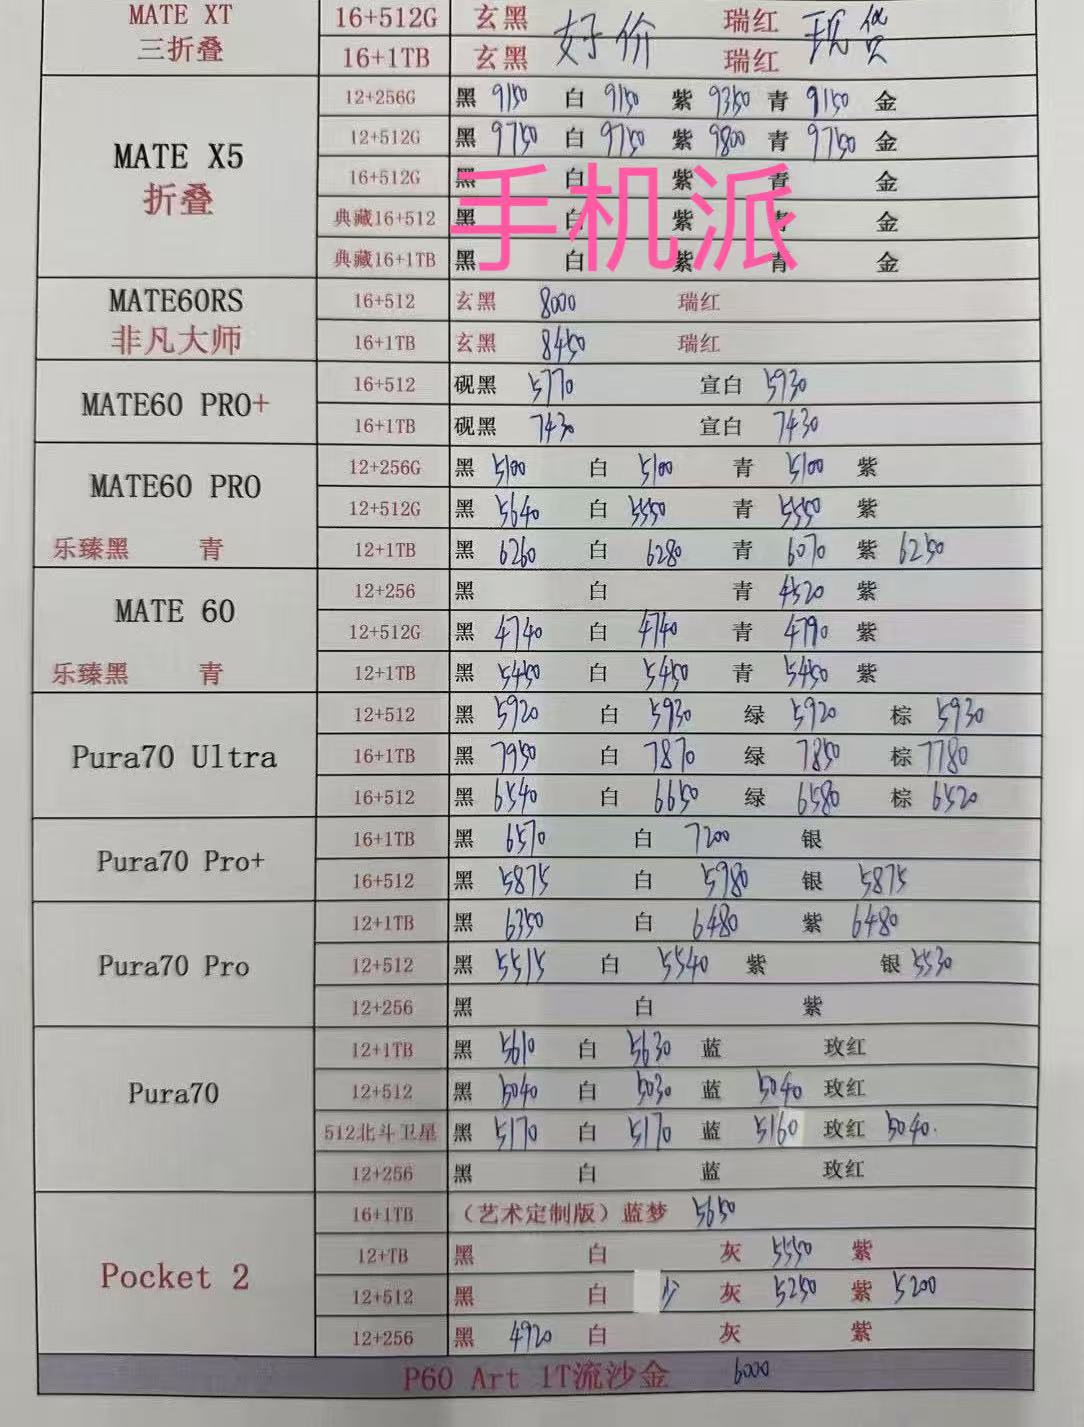 MATE XT 16+512G 玄黑 好价 瑞红 现货
三折叠 16+1TB 玄黑 瑞红
12+256G 黑 9150 白 9150 紫 9350 青 9150 金
MATE X5 12+512G 黑 9750 白 9750 紫 9800 青 9750 金
折叠 16+512G 黑 白 紫 青 金
手机派
典藏16+512 黑 白 紫 青 金
典藏16+1TB 黑 白 紫 青 金
MATE60RS 16+512 玄黑 8000 瑞红
非凡大师 16+1TB 玄黑 8450 瑞红
MATE60 PRO+ 16+512 砚黑 5770 宣白 5930
16+1TB 砚黑 7430 宣白 7430
MATE60 PRO 12+256G 黑 5100 白 5100 青 5100 紫
12+512G 黑 5640 白 5550 青 5550 紫
乐臻黑 青 12+1TB 黑 6260 白 6280 青 6070 紫 6250
MATE 60 12+256 黑 白 青 4520 紫
12+512G 黑 4740 白 4740 青 4790 紫
乐臻黑 青 12+1TB 黑 5450 白 5450 青 5450 紫
Pura70 Ultra 12+512 黑 5920 白 5930 绿 5920 棕 5930
16+1TB 黑 7950 白 7870 绿 7850 棕 7780
16+512 黑 6540 白 6650 绿 6580 棕 6520
Pura70 Pro+ 16+1TB 黑 6570 白 7200 银
16+512 黑 5875 白 5980 银 5875
Pura70 Pro 12+1TB 黑 6350 白 6480 紫 6480
12+512 黑 5515 白 5540 紫 银 5530
12+256 黑 白 紫
Pura70 12+1TB 黑 5610 白 5630 蓝 玫红
12+512 黑 5040 白 5030 蓝 5040 玫红
512北斗卫星 黑 5170 白 5170 蓝 5160 玫红 5040.
12+256 黑 白 蓝 玫红
Pocket 2 16+1TB （艺术定制版）蓝梦 5650
12+TB 黑 白 灰 5550 紫
12+512 黑 白 灰 5250 紫 5200
12+256 黑 4920 白 灰 紫
P60 Art 1T流沙金 6000